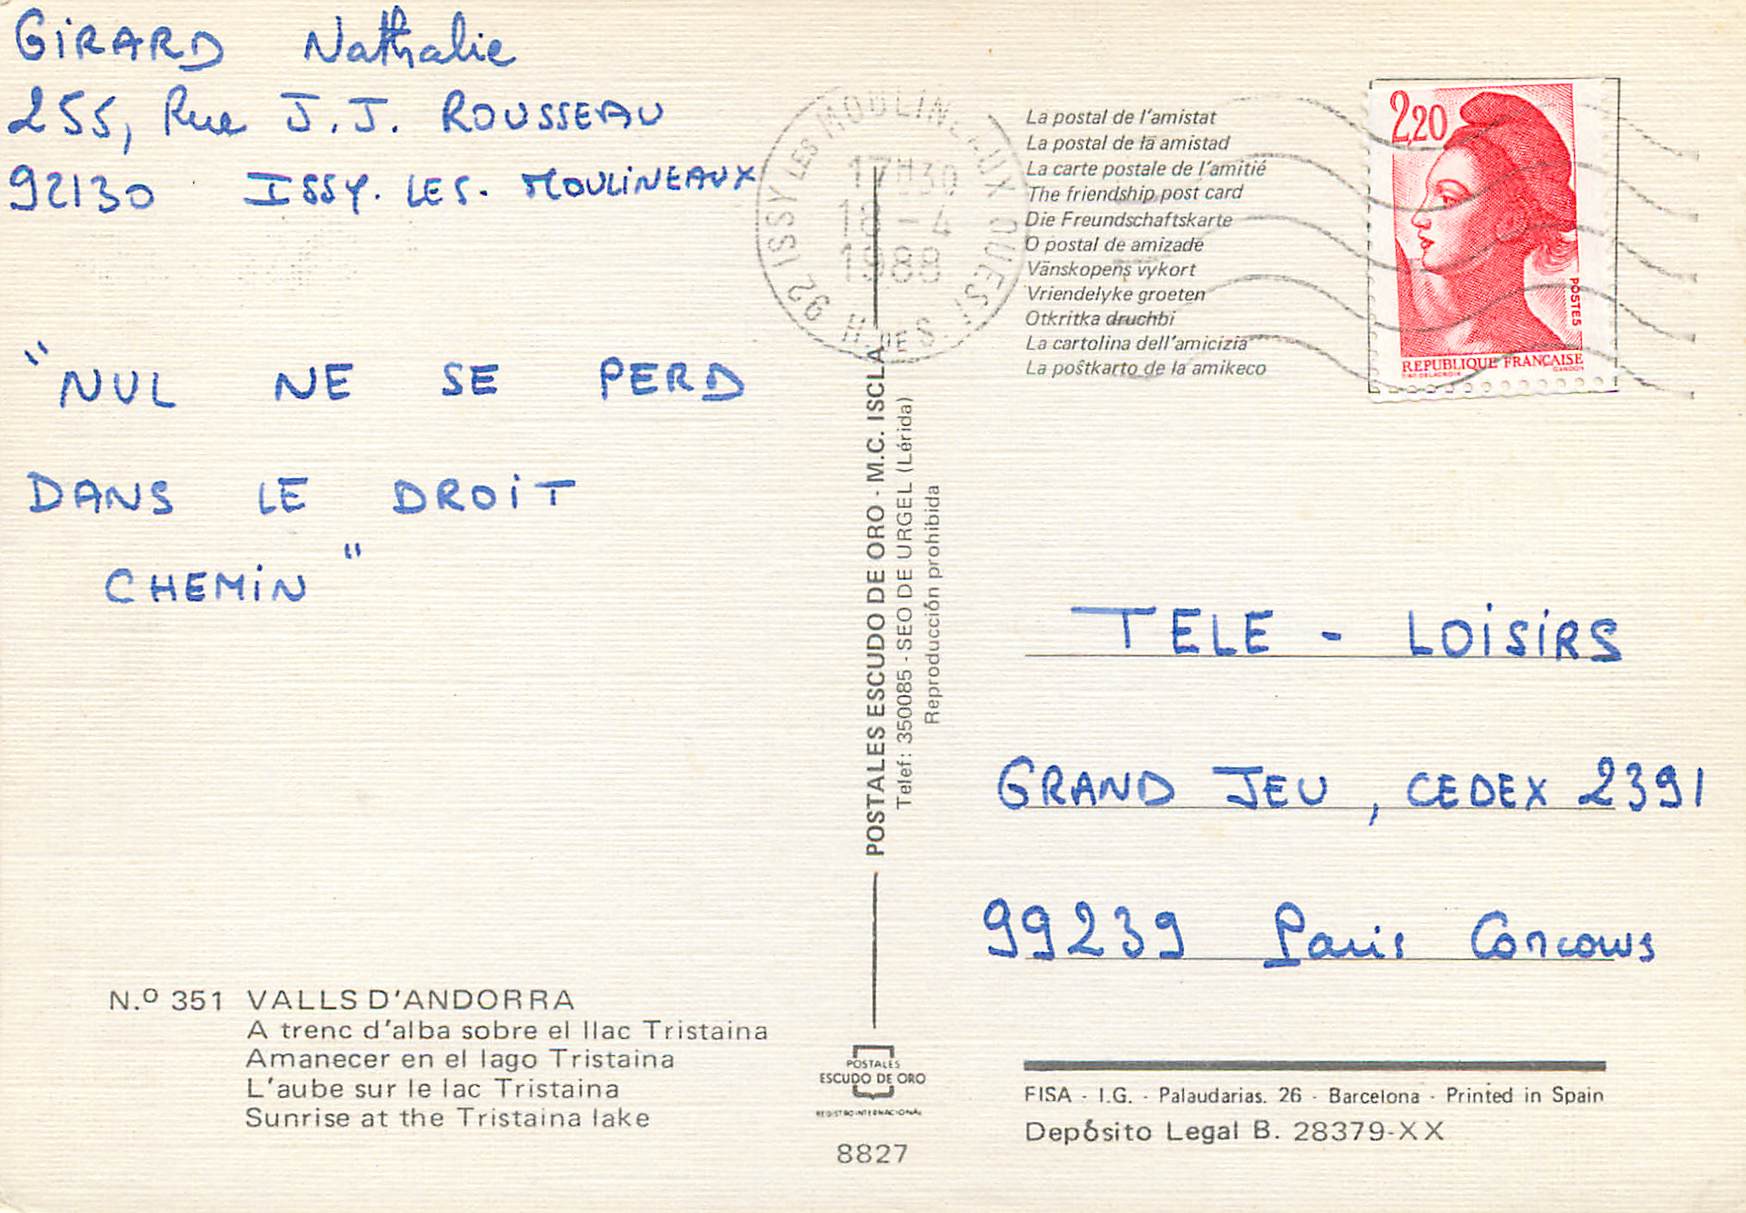 GIRARD Nathalie
255, Rue J.J. ROUSSEAU
92130 ISSY. LES. MOULINEAUX
"NUL NE SE PERD
DANS LE DROIT
CHEMIN"
N.º 351 VALLS D'ANDORRA
A trenc d'alba sobre el llac Tristaina
Amanecer en el lago Tristaina
L'aube sur le lac Tristaina
Sunrise at the Tristaina lake
92 ISSY LES MOULINEAUX OUEST
H. DES S.
17H30
18 - 4
1988
POSTALES ESCUDO DE ORO - M.C. ISCLA
Telef: 350085 - SEO DE URGEL (Lérida)
Reproducción prohibida
POSTALES
ESCUDO DE ORO
REGISTRO INTERNACIONAL
8827
La postal de l'amistat
La postal de la amistad
La carte postale de l'amitié
The friendship post card
Die Freundschaftskarte
O postal de amizade
Vänskopens vykort
Vriendelyke groeten
Otkritka druchbi
La cartolina dell'amicizia
La poŝtkarto de la amikeco
2,20
POSTES
REPUBLIQUE FRANÇAISE
GANDON
TELE - LOISIRS
GRAND JEU, CEDEX 2391
99239 Paris Concours
FISA - I.G. - Palaudarias. 26 - Barcelona - Printed in Spain
Depósito Legal B. 28379-XX